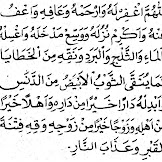 اللَّهُمَّ اغْفِرْ لَهُ وَارْحَمْهُ وَعَافِهِ وَاعْفُ
عَنْهُ وَأَكْرِمْ نُزُلَهُ وَوَسِّعْ مَدْخَلَهُ وَاغْسِلْهُ
بِالْمَاءِ وَالثَّلْجِ وَالْبَرَدِ وَنَقِّهِ مِنَ الْخَطَايَا
كَمَا يُنَقَّى الثَّوْبُ الْأَبْيَضُ مِنَ الدَّنَسِ
وَأَبْدِلْهُ دَارًا خَيْرًا مِنْ دَارِهِ وَأَهْلًا خَيْرًا
مِنْ أَهْلِهِ وَزَوْجًا خَيْرًا مِنْ زَوْجِهِ وَقِهِ فِتْنَةَ
الْقَبْرِ وَعَذَابَ النَّارِ